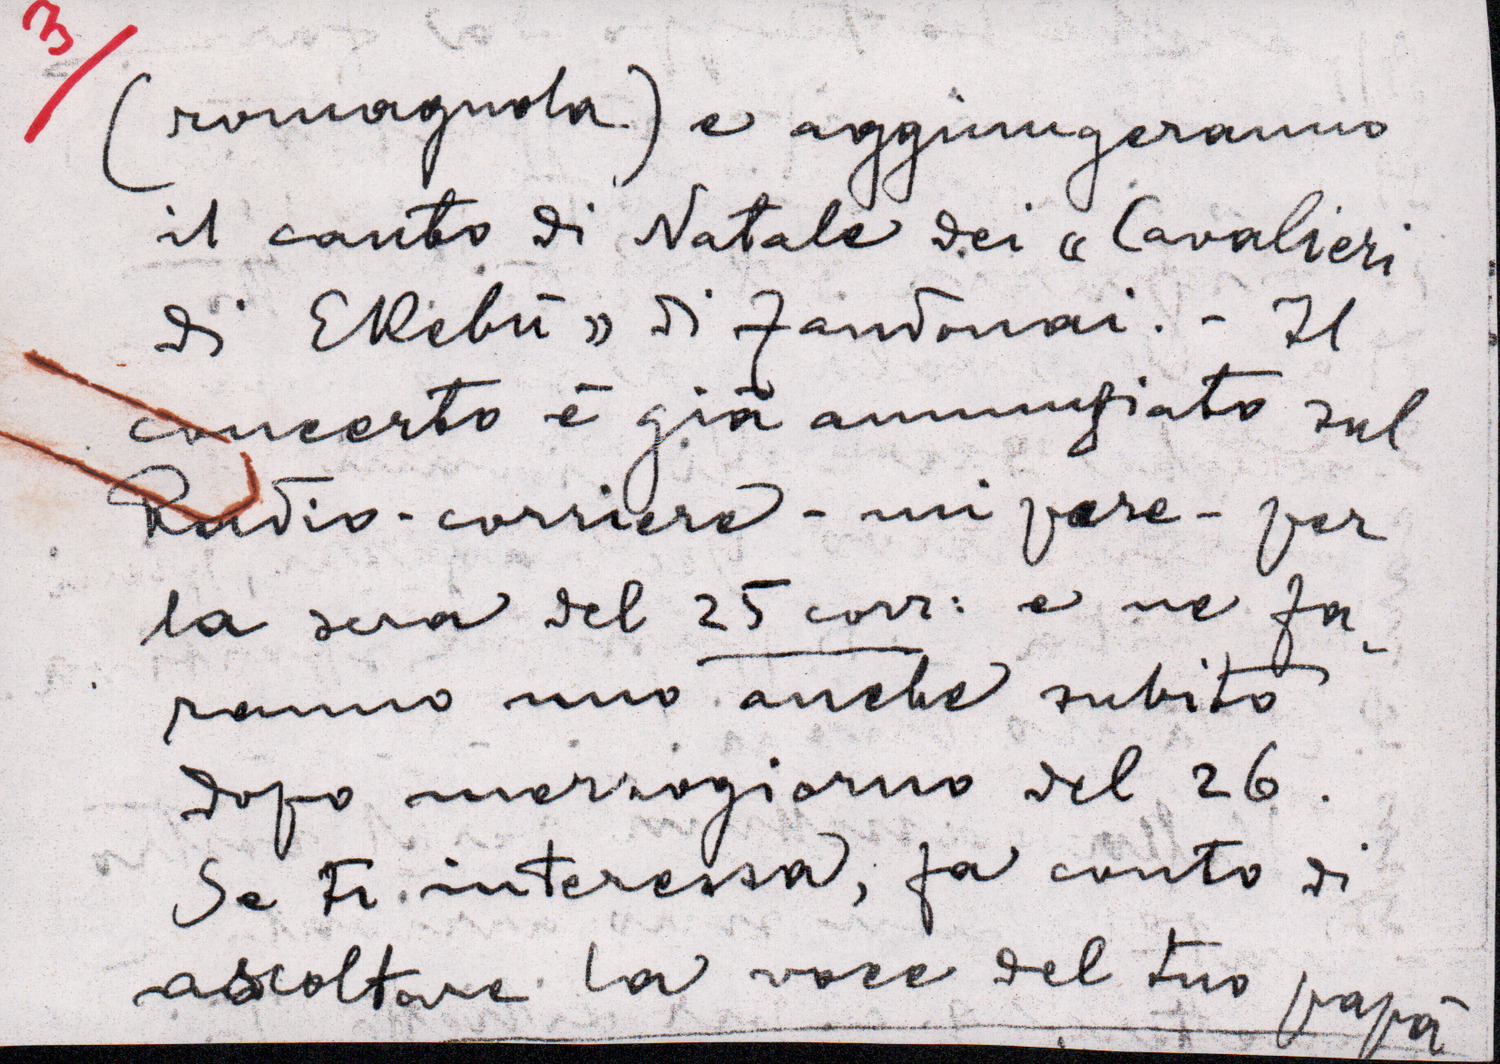 3/
(romagnola) e aggiungeranno
il canto di Natale dei "Cavalieri
di Ekebù" di Zandonai. - Il
concerto è già annunziato sul
Radio-corriere - mi pare - per
la sera del 25 corr: e ne fa-
ranno uno anche subito
dopo mezzogiorno del 26.
Se Ti interessa, fa conto di
ascoltare la voce del tuo papà